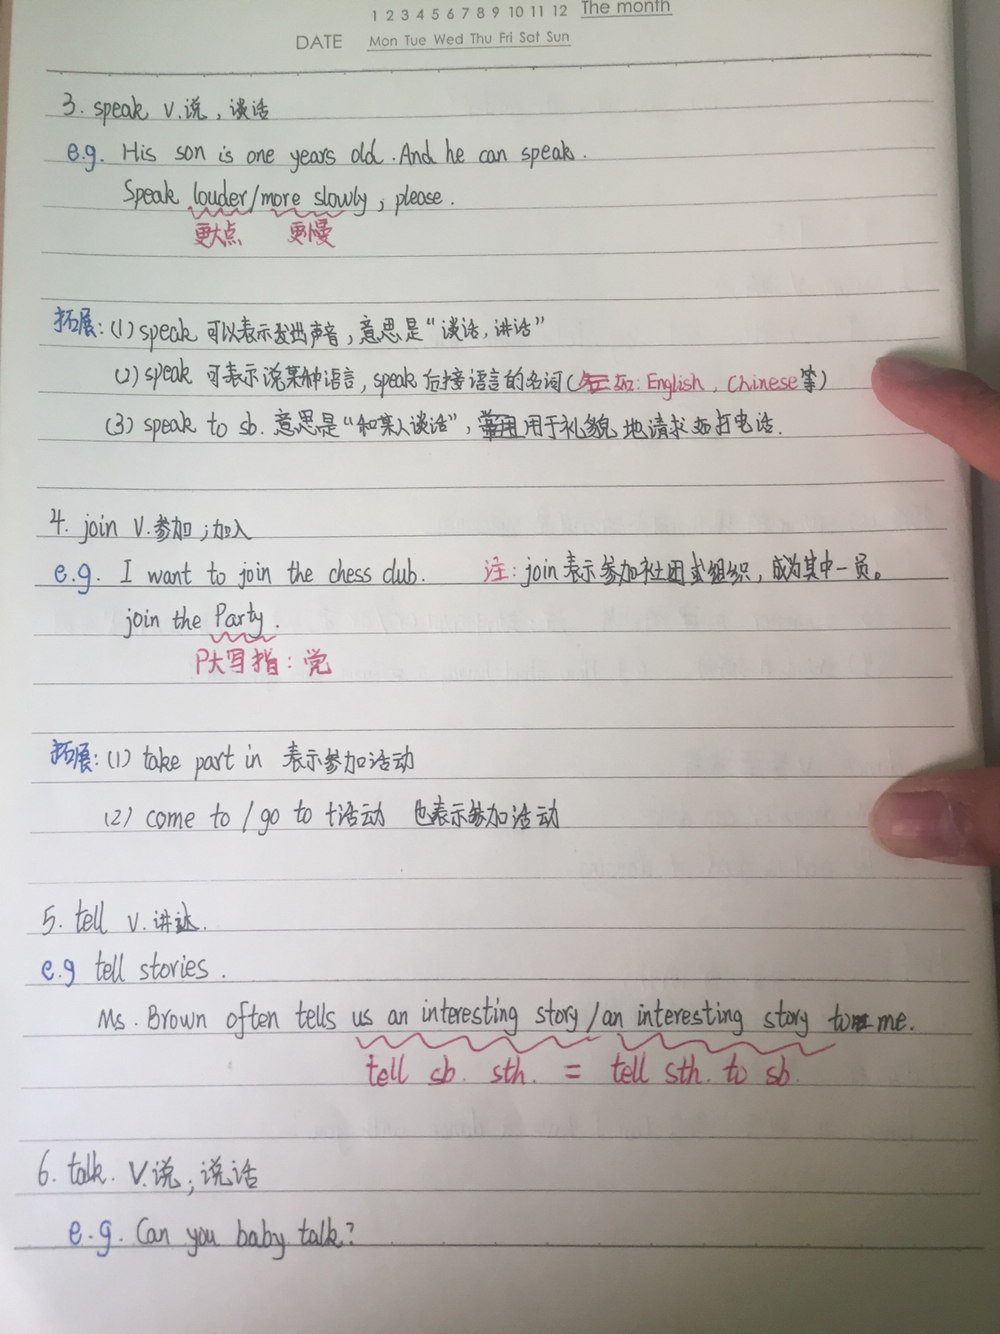 1 2 3 4 5 6 7 8 9 10 11 12 The month
DATE Mon Tue Wed Thu Fri Sat Sun
3. speak v.说，谈话
e.g. His son is one years old. And he can speak.
Speak louder/more slowly, please.
更大点 更慢
拓展：(1) speak 可以表示发出声音，意思是“谈话，讲话”
(2) speak 可表示说某种语言，speak 后接语言的名词（如：English，Chinese等）
(3) speak to sb. 意思是“和某人谈话”，用于礼貌地请求 打电话.
4. join v.参加；加入
e.g. I want to join the chess club. 注：join表示参加社团或组织，成为其中一员。
join the Party.
P大写指：党
拓展：(1) take part in 表示参加活动
(2) come to / go to +活动 也表示参加活动
5. tell v.讲述.
e.g tell stories.
Ms. Brown often tells us an interesting story/an interesting story to me.
tell sb. sth. = tell sth. to sb.
6. talk. v.说；说话
e.g. Can you baby talk?